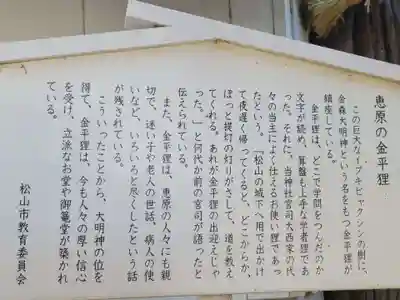 恵原の金平狸
この巨大なイブキビャクシンの樹に、
金森大明神という名をもつ金平狸が
鎮座している。
金平狸は、どこで学問をつんだのか
文字が読め、算盤も上手な学者狸であ
った。それに、当神社宮司大西家の代
々の当主によく仕えるお使い狸であっ
たという。「松山の城下へ用で出かけ
て夜遅く帰ってくると、どこからか、
ぽっと提灯の灯りがさして、道を教え
てくれる。あれが金平狸の出迎えじゃ
った。」と何代か前の宮司が語ったと
伝えられている。
また、金平狸は、恵原の人々にも親
切で、迷い子や老人の世話、病人の使
いなど、いろいろと尽くしたという話
が残されている。
こういったことから、大明神の位を
得て、金平狸は、今も人々の厚い信心
を受け、立派なお堂や御籠堂が築かれ
ている。
松山市教育委員会